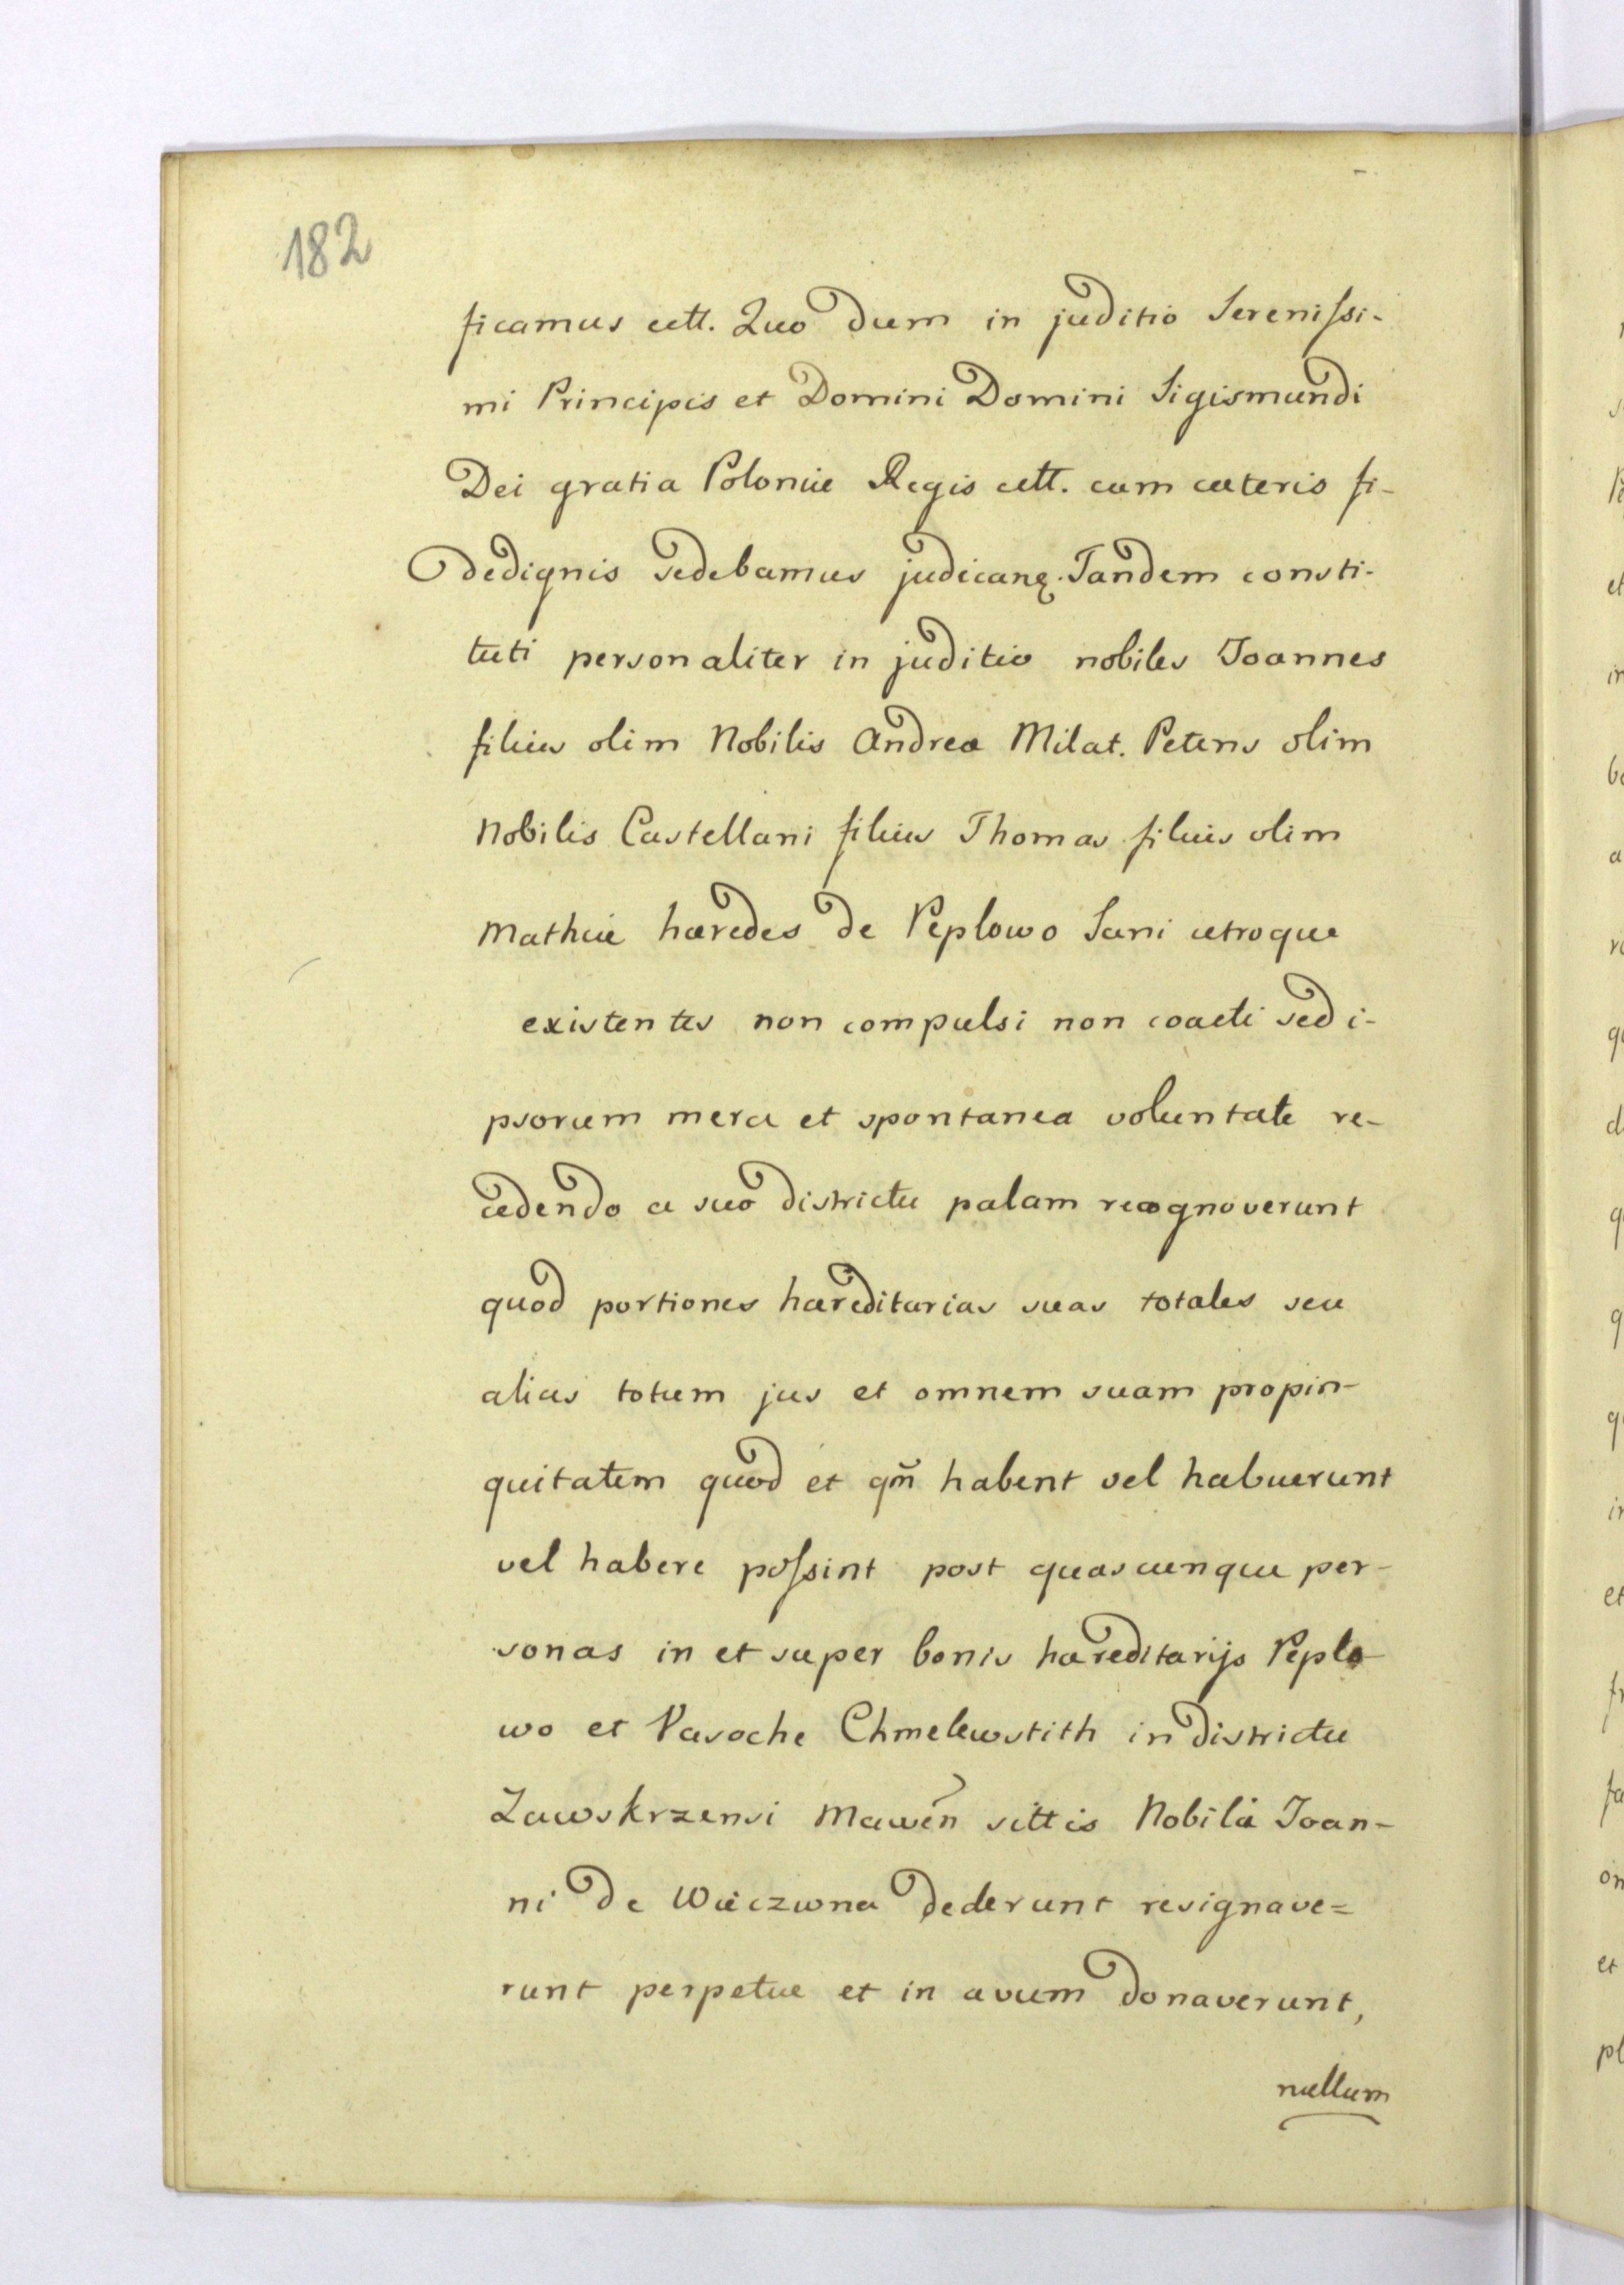 182
ficamus cett. Quo dum in juditio Serenissi-
mi Principis et Domini Domini Sigismundi
Dei gratia Poloniæ Regis cett. cum cæteris fi-
dedignis sedebamus judicanꝫ. Tandem consti-
tuti personaliter in juditio nobiles Joannes
filius olim Nobilis Andreæ Milat. Petrus olim
Nobilis Castellani filius Thomas filius olim
Mathiæ hæredes de Peplowo Sani utroque
existentes non compulsi non coacti sed i-
psorum mera et spontanea voluntate re-
cedendo a suo districtu palam recognoverunt
quod portiones hæreditarias suas totales seu
alias totum jus et omnem suam propin-
quitatem quod et qm̃ habent vel habuerunt
vel habere possint post quascunque per-
sonas in et super bonis hæreditarijs Peplo
wo et Pasoche Chmelewstith in districtu
Zawskrzensi Mawen̄ sittis Nobili Joan-
ni de Wieczwna dederunt resignave=
runt perpetue et in ævum donaverunt,
nullum